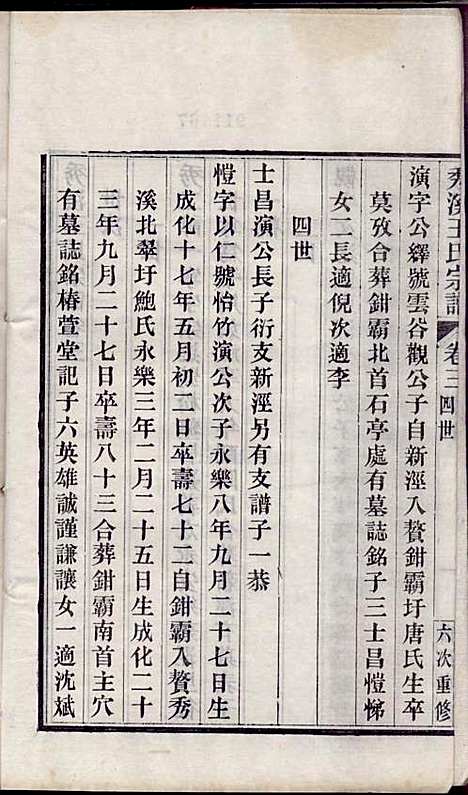 秀溪王氏宗譜 卷三 四世 六次重修
演字公繹號雲谷觀公子自新涇入贅鉗霸圩唐氏生卒
莫攷合葬鉗霸北首石亭處有墓誌銘子三士昌愷悌
女二長適倪次適李
四世
士昌演公長子衍支新涇另有支譜子一恭
愷字以仁號怡竹演公次子永樂八年九月二十七日生
成化十七年五月初二日卒壽七十二自鉗霸入贅秀
溪北翠圩鮑氏永樂三年二月二十五日生成化二十
三年九月二十七日卒壽八十三合葬鉗霸南首主穴
有墓誌銘椿萱堂記子六英雄誠謹謙讓女一適沈斌